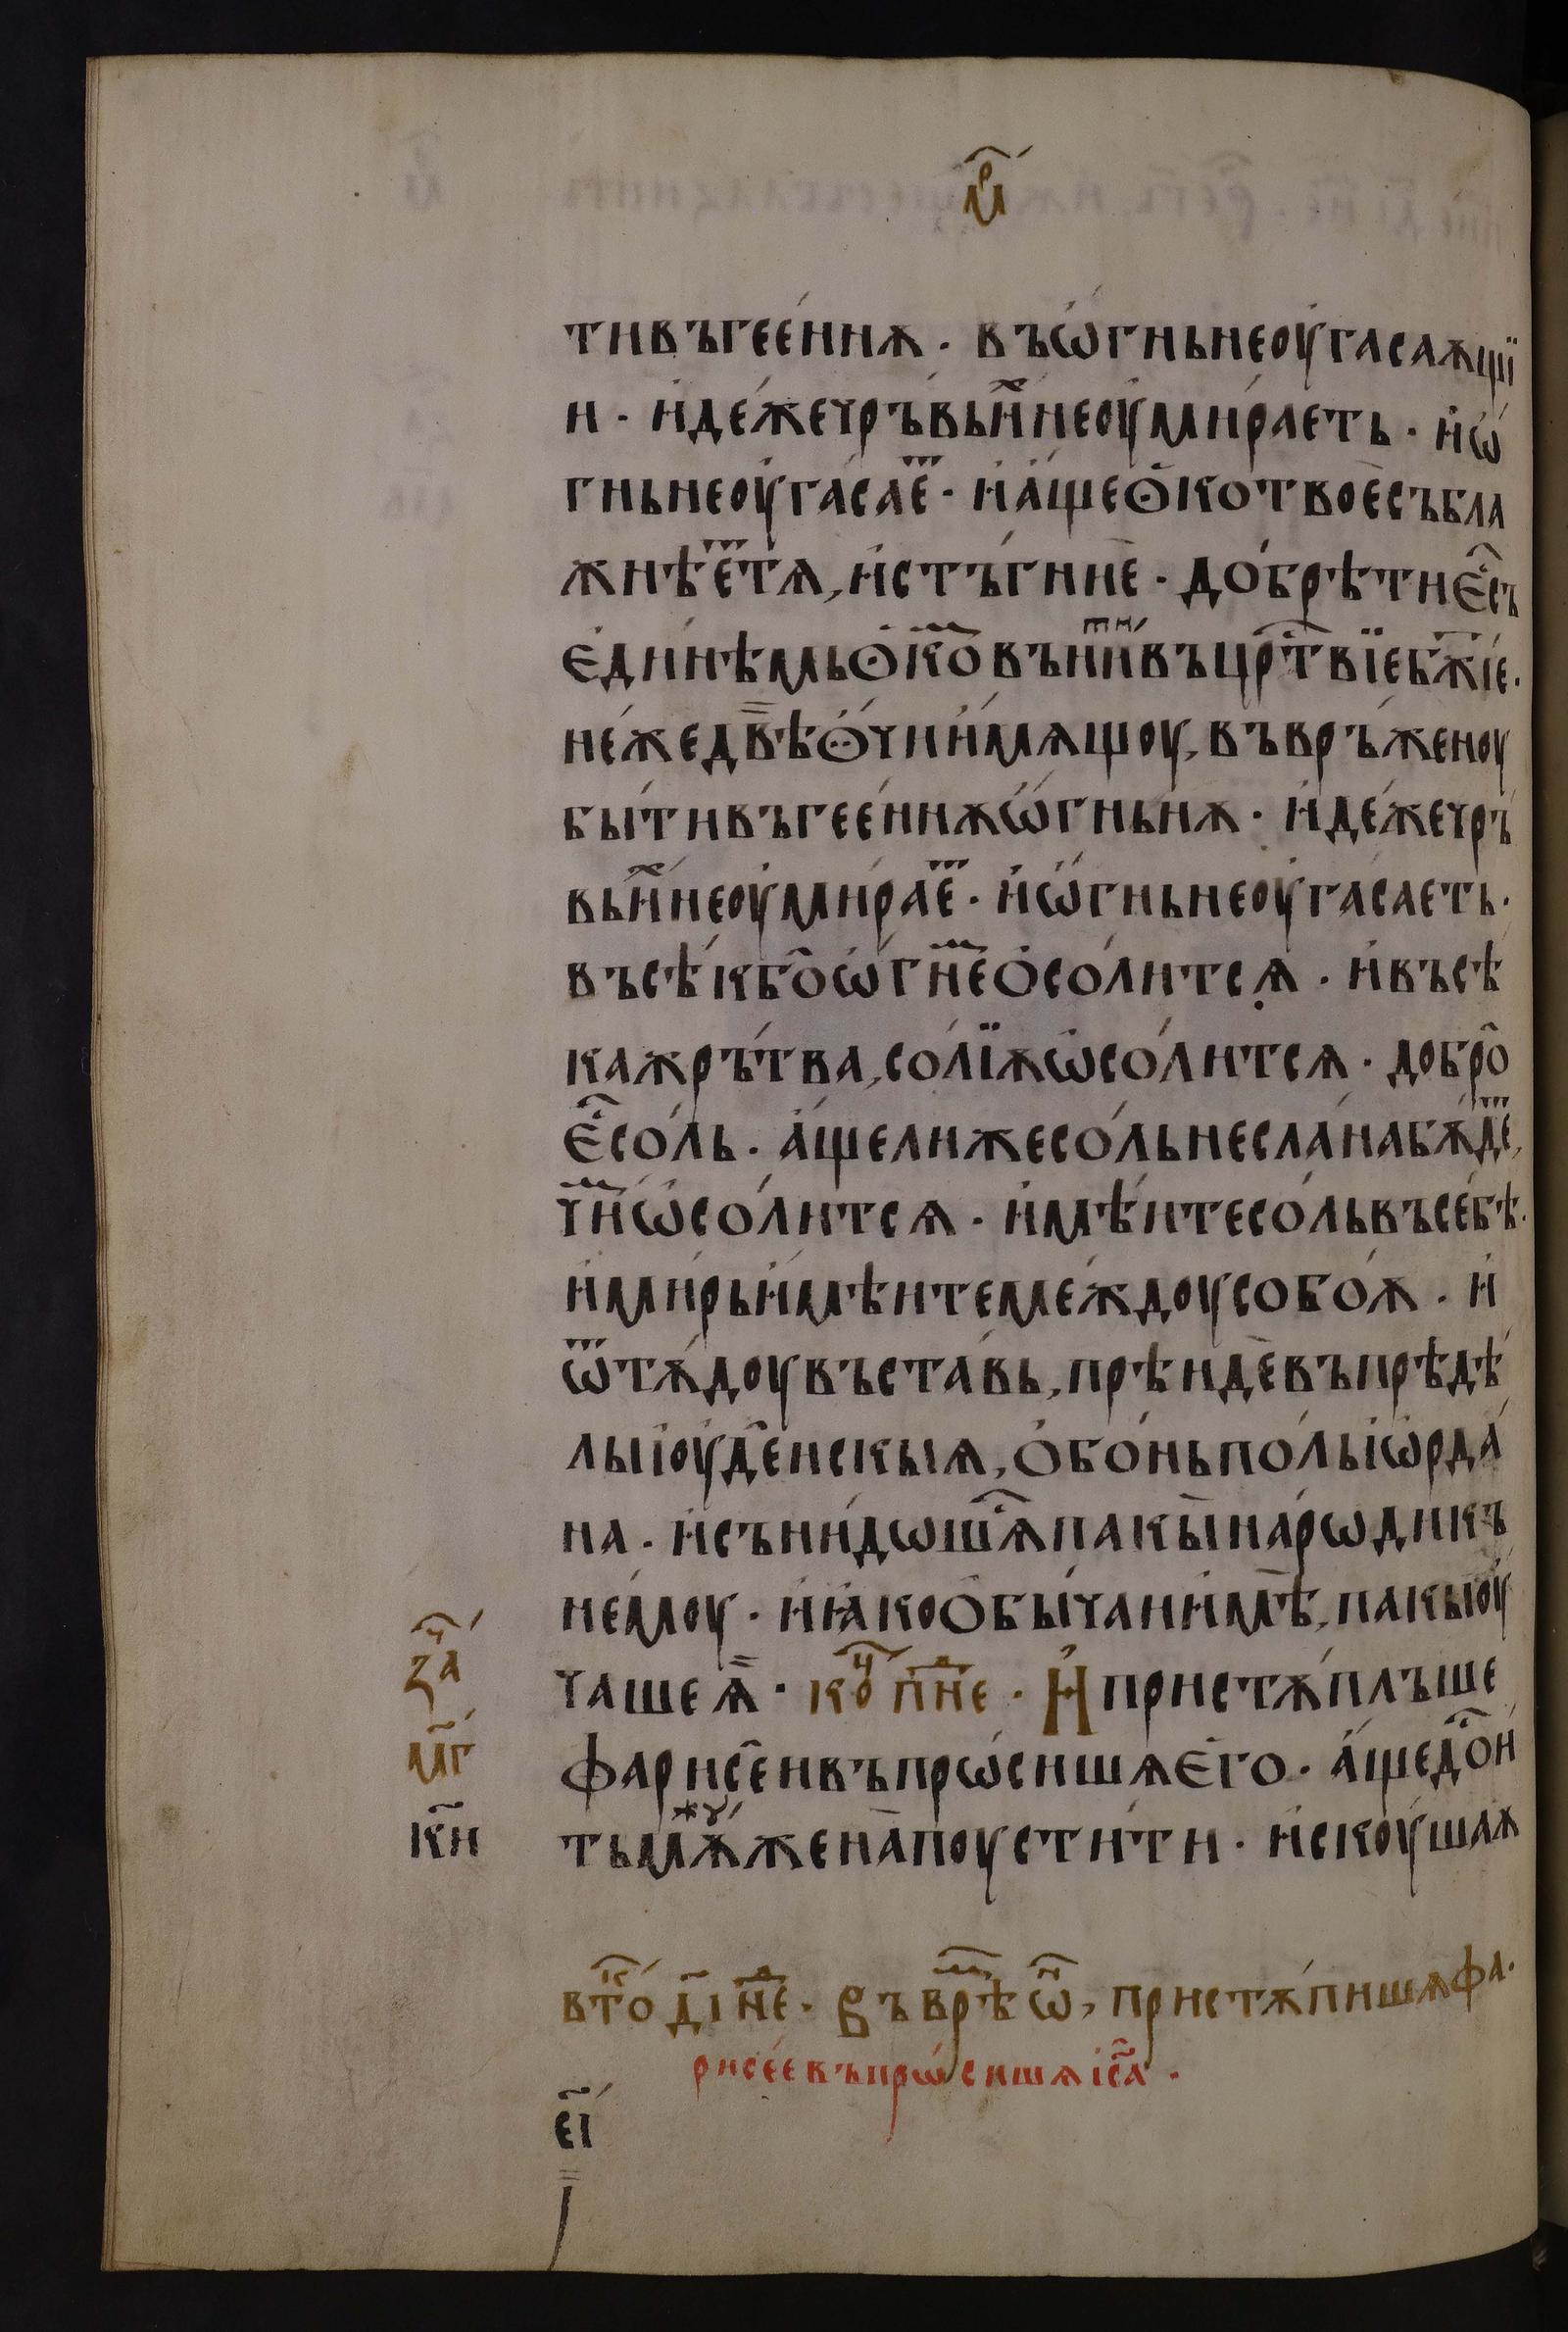 мр҃
тивъгее́ннѫ · въѡ́гньнеоу҆гасаѫщїи
и · и҆де́жечръ́вьи҆неоу҆ми́раеть · и҆ѡ҆
гньнеоу҆га́саеⷮ · и҆а҆́щеѻ҆́котвоѐсъбла
жнѣ́еⷮтѧ, и҆стъ́гниѐ · до́брѣтиє҆съ
є҆ди́нѣмьѻ҆́коⷨвъни́тивъцрⷭ҇твїебж҃їе ·
не́жедвѣѻ҆́чии҆мѧщоу, въвръ́женоу
бы́тивъгее́ннѫѡ҆́гньнѫ · и҆де́жечръ
вьи҆неоу҆ми́раеⷮ · и҆ѡ҆́гньнеоу҆га́саеть ·
въсѣ́кбо҆ѡ҆гнеⷨѻ҆со́литсѧ · и҆въсѣ́
кажръ́тва, со́лїѫѡ҆со́литсѧ · добро
є҆со́ль · а҆́щелижесо́льнесла́набѫ́деⷮ,
чиⷨѡ҆со́литсѧ · и҆мѣ́итесо́львъсе́бѣ ·
и҆ми́рьи҆мѣитеме́ждоусобо́ѫ · и҆
ѿтѫ́доувъста́вь, прѣидѐвъпрѣдѣ́
лыіоу҆де́искыѧ, ѻ҆бо́ньпо́льіѡ҆рда́
на · и҆съни́дошⷭ҇ѧпакы̀наро́дикъ
не́моу · и҆ꙗ҆́коѻ҆бы́чаи҆мѣ̀, пакыоу҆
чашеѧ҆̀ · коⷰ҇ пⷩ҇не · И҆пристѫ́плъше
фарисе́ивъпро́сишѧє҆го · а҆́щедо́и
тьмѫ́жоуже́нѫпоусти́ти · и҆скоу́шаѫ
заⷱ҇
мг҃
кн҃
втоⷦ҇ ді҃ не҃ · Въврѣⷨѡⷩ҇, пристѫ́пишѧфа ·
рисе́евъпро́сишѧіс҃а ·
еі҃